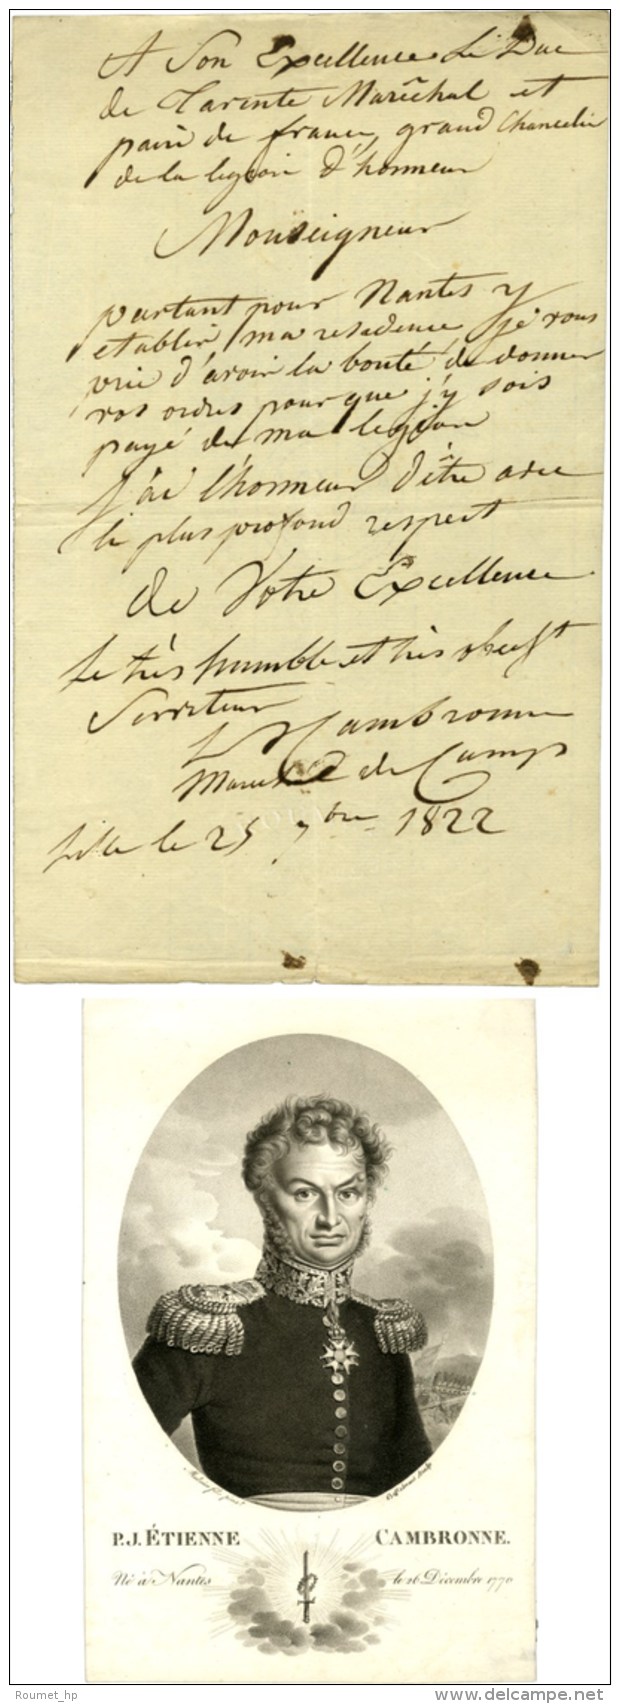 A Son Excellence Le Duc
de Tarente Maréchal et
pair de france, grand Chancelier
de la legion d'honneur
Monseigneur
partant pour Nantes y
etablir ma residence je vous
prie d'avoir la bonté de donner
vos ordres pour que j'y sois
payé de ma legion
J'ai l'honneur d'être avec
le plus profond respect
de Votre Excellence
Le très humble et très obeisst
Serviteur
Cambronne
Marechal de Camp
Lille le 25 7bre 1822
P.J. ÉTIENNE CAMBRONNE.
Né à Nantes le 26 Décembre 1770
Roumet_hp
www.delcampe.net